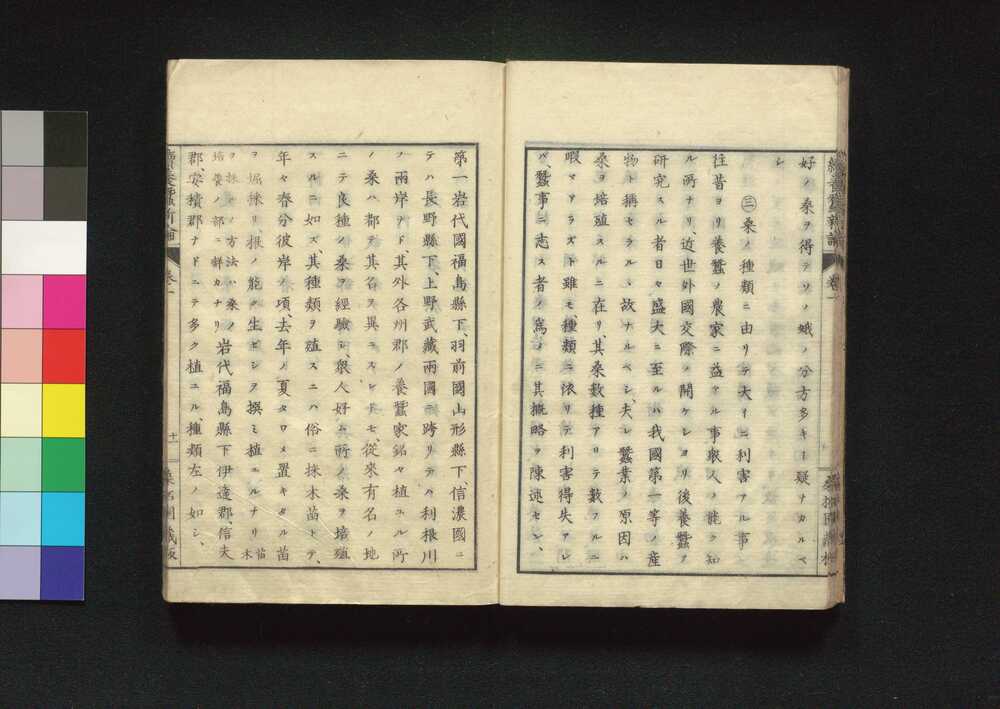 好ノ桑ヲ得テソノ蛾ノ分方多キ亠疑ナカルベ
シ
㊂桑ノ種類ニ由リテ大イニ利害アル事
往昔ヨリ養蠶ノ農家ニ益アル事衆人ノ能ク知
ル所ナリ、近世外國交際ノ開ケシヨリ後養蠶ヲ
研究スル者日々盛大ニ至ルハ我國第一等ノ産
物ト稱セラル丶故ナルベシ、夫レ蠶業ノ原因ハ
桑ヲ培殖スルニ在リ、其桑數種アリテ數フルニ
暇マアラズト雖モ、種類ニ依リテ利害得失アレ
バ、蠶事ニ志ス者ノ爲メニ其概略ヲ陳述セン、
第一岩代國福島縣下、羽前國山形縣下、信濃國ニ
テハ長野縣下、上野武藏兩國ニ跨リテハ利根川
ノ兩岸ナド、其外各州郡ノ養蠶家銘々植ユル所
ノ桑ハ都テ其名ヲ異ニスレドモ、從來有名ノ地
ニテ良種ノ桑ヲ經驗シ、衆人好ム所ノ桑ヲ培殖
スルニ如ズ、其種類ヲ殖スニハ俗ニ採木苗トテ、
年々春分彼岸ノ頃、去年ノ夏タワメ置キタル苗
ヲ堀採リ、根ノ能ク生ゼシヲ撰ミ植ユルナリ 苗木
ヲ採ルノ方法ハ桑ノ
培養ノ部ニ詳カナリ 岩代福島縣下伊達郡、信夫
郡、安積郡ナドニテ多ク植ユル、種類左ノ如シ、
續養蠶新論 卷一 十一 桑柘園藏版